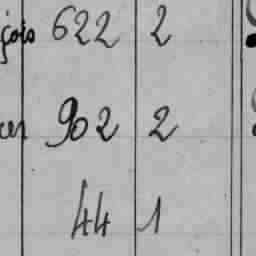 çois 622 2
902 2
44 1